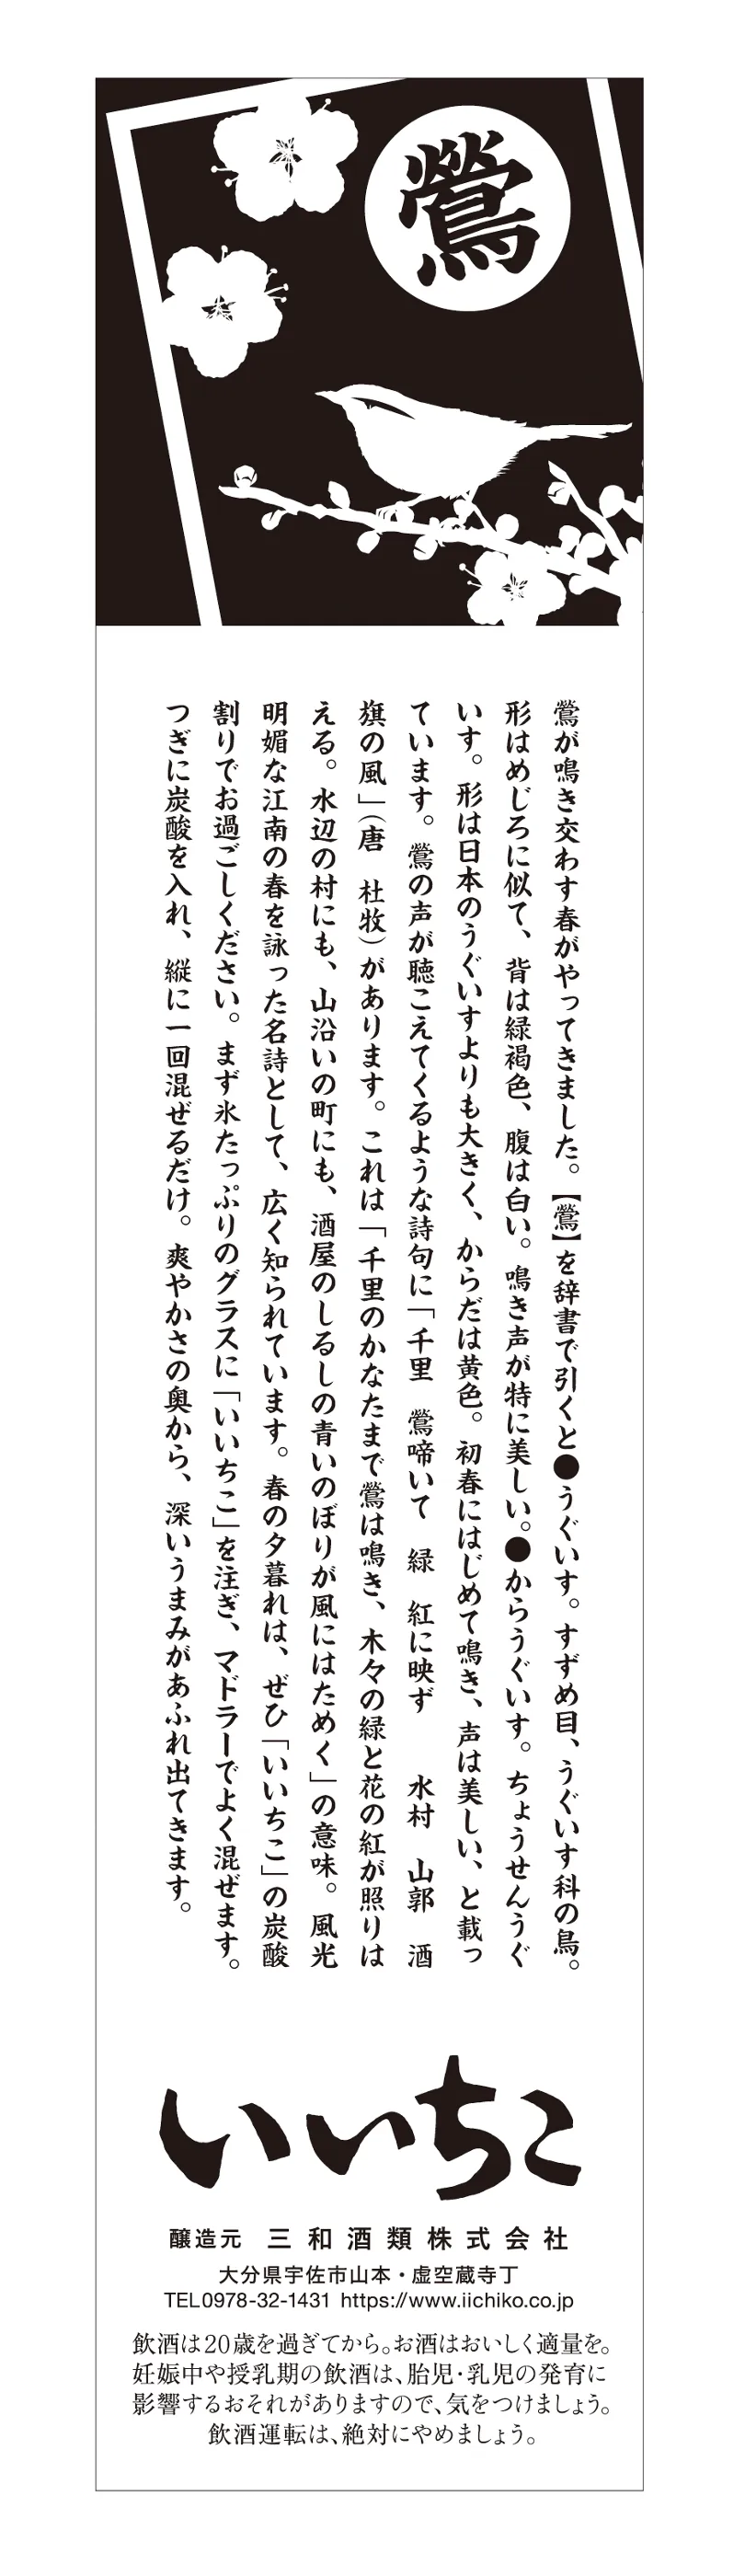 鶯
鶯が鳴き交わす春がやってきました。【鶯】を辞書で引くと●うぐいす。すずめ目、うぐいす科の鳥。
形はめじろに似て、背は緑褐色、腹は白い。鳴き声が特に美しい。●からうぐいす。ちょうせんうぐ
いす。形は日本のうぐいすよりも大きく、からだは黄色。初春にはじめて鳴き、声は美しい、と載っ
ています。鶯の声が聴こえてくるような詩句に「千里　鶯啼いて　緑　紅に映ず　　水村　山郭　酒
旗の風」（唐　杜牧）があります。これは「千里のかなたまで鶯は鳴き、木々の緑と花の紅が照りは
える。水辺の村にも、山沿いの町にも、酒屋のしるしの青いのぼりが風にはためく」の意味。風光
明媚な江南の春を詠った名詩として、広く知られています。春の夕暮れは、ぜひ「いいちこ」の炭酸
割りでお過ごしください。まず氷たっぷりのグラスに「いいちこ」を注ぎ、マドラーでよく混ぜます。
つぎに炭酸を入れ、縦に一回混ぜるだけ。爽やかさの奥から、深いうまみがあふれ出てきます。
いいちこ
醸造元　三和酒類株式会社
大分県宇佐市山本・虚空蔵寺丁
TEL0978-32-1431 https://www.iichiko.co.jp
飲酒は20歳を過ぎてから。お酒はおいしく適量を。
妊娠中や授乳期の飲酒は、胎児・乳児の発育に
影響するおそれがありますので、気をつけましょう。
飲酒運転は、絶対にやめましょう。